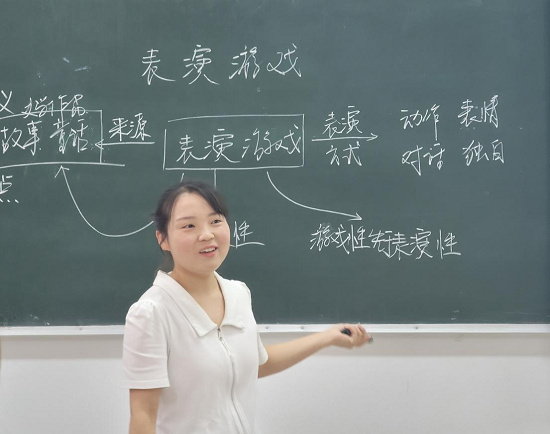 表演游戏
义 文学作品
故事 童话 来源 表演游戏 表演方式 动作 表情
对话 独白
点
性
游戏性先于表演性